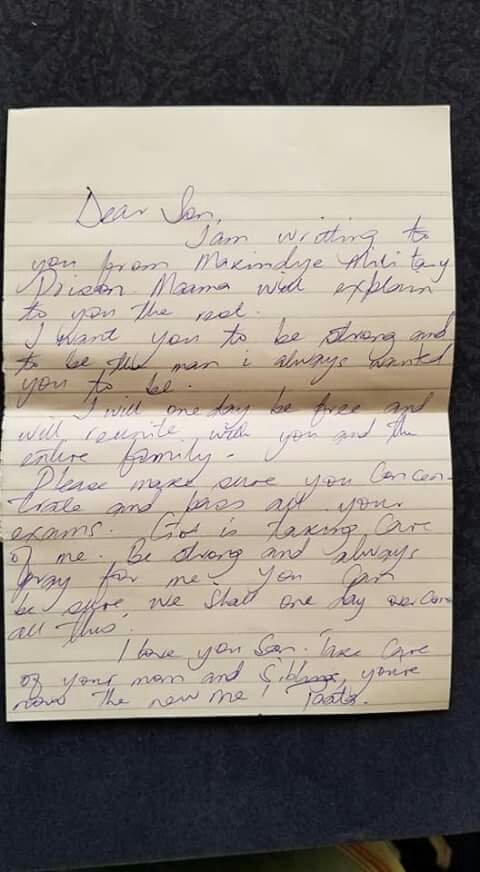 Dear Son,
I am writting to
you from Makindye Military
Prison. Maama will explain
to you the rest.
I want you to be strong and
to be the man i always wanted
you to be.
I will one day be free and
will reunite with you and the
entire family.
Please make sure you concen-
trate and pass all your
exams. God is taking care
of me. Be strong and always
pray for me. You can
be sure, we shall one day overcome
all this.
I love you Son. Take care
of your mom and Siblings, you're
now the new me! Taata.